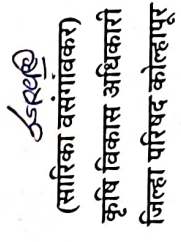 (सारिका वसंगावकर)
कृषि विकास अधिकारी
जिल्हा परिषद कोल्हापूर